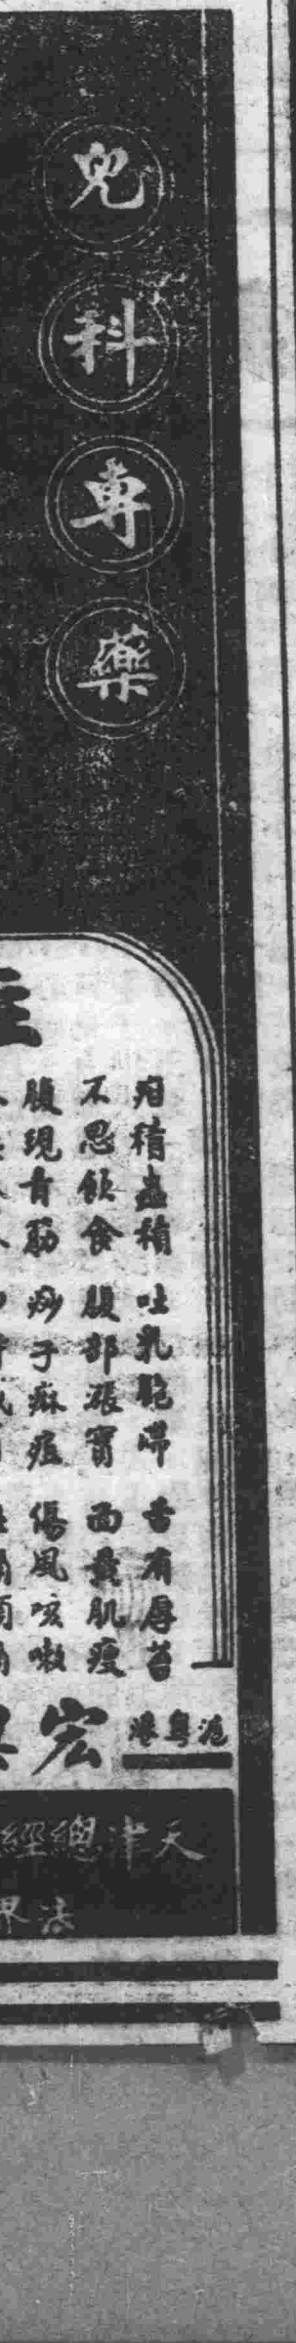 兒科專藥
疳積蟲積 吐乳飽滯 舌有厚苔
不思飲食 腹部硬實 面黃肌瘦
腹現青筋 痧子痲痘 傷風咳嗽
滬粵港
宏興
天津總經
法界